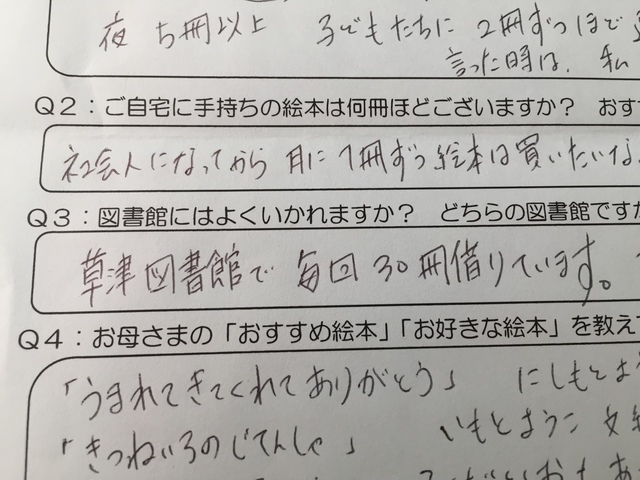 夜 5冊以上 子どもたちに 2冊ずつほど
言った時は、私
Q2：ご自宅に手持ちの絵本は何冊ほどございますか？ おす
社会人になってから 月に1冊ずつ絵本は買いたいな
Q3：図書館にはよくいかれますか？ どちらの図書館ですか
草津図書館で 毎回30冊借りています。
Q4：お母さまの「おすすめ絵本」「お好きな絵本」を教えて
「うまれてきてくれてありがとう」 にしもとよう
「きつねいろのじてんしゃ」 いもとようこ 文